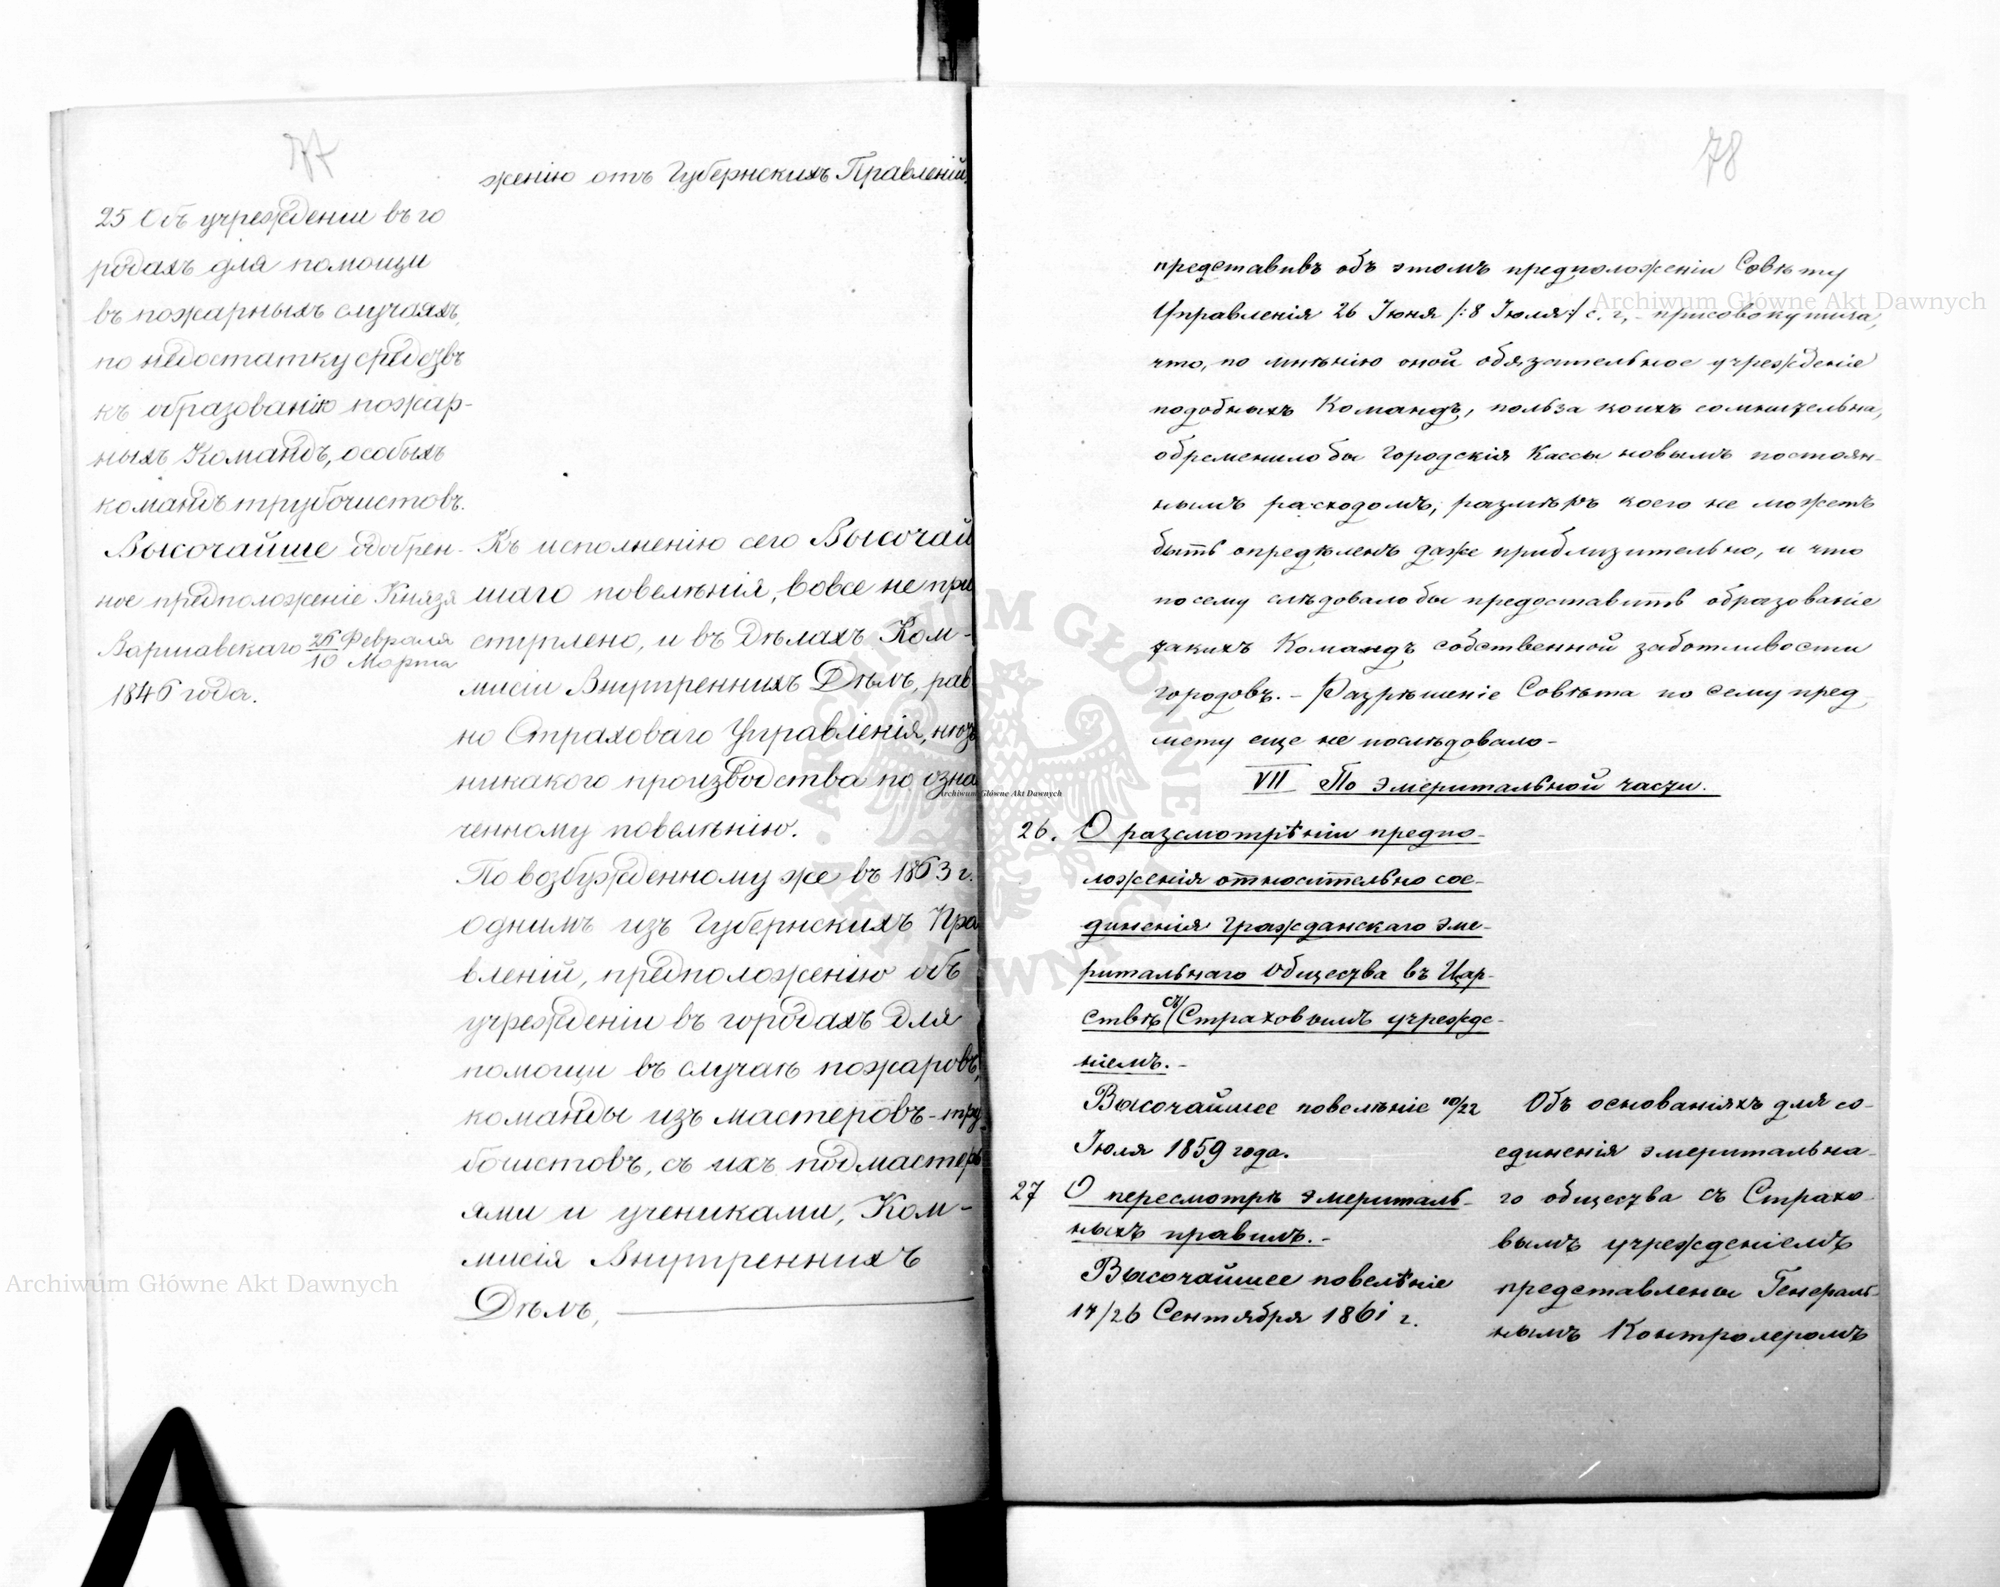 77
женію отъ Губернскихъ Правленій,
25 Объ учрежденіи въ го
родахъ для помощи
въ пожарныхъ случаяхъ,
по недостатку средствъ
къ образованію пожар-
ныхъ Командъ, особыхъ
командъ трубочистовъ.
Высочайше одобрен-
ное предположеніе Князя
Варшавскаго 26/10 Февраля Марта
1846 года.
Къ исполненію сего Высочай
шаго повелѣнія, вовсе не при
ступлено, и въ Дѣлахъ Ком-
мисіи Внутреннихъ Дѣлъ, рав
но Страховаго Управленія, нѣтъ
никакого производства по озна
ченному повелѣнію.
По возбужденному же въ 1863 г.
одними изъ Губернскихъ Пра
вленій, предположенію объ
учрежденіи въ городахъ для
помощи въ случаѣ пожаровъ,
команды изъ мастеровъ-тру
бочистовъ, съ ихъ подмастерь
ями и учениками, Ком-
мисія Внутреннихъ
Дѣлъ,
78
представивъ объ этомъ предположеніи Совѣту
Управленія 26 Іюня /:8 Іюля:/ с. г., присовокупила,
что, по мнѣнію оной обязательное учрежденіе
подобныхъ Командъ, польза коихъ сомнительна,
обременило бы Городскія Кассы новымъ постоян-
нымъ расходомъ, размѣръ коего не можетъ
быть опредѣленъ даже приблизительно, и что
посему слѣдовало бы предоставить образованіе
такихъ Командъ собственной заботливости
городовъ. - Разрѣшеніе Совѣта по сему пред
мету еще не послѣдовало-
VII По эмеритальной части.
26. О разсмотрѣніи предпо-
ложенія относительно сое-
диненія Гражданскаго эме-
ритальнаго Общества въ Цар-
ствѣ съ Страховымъ учрежде-
ніемъ. -
Высочайшее повелѣніе 10/22
Іюля 1859 года.
27 О пересмотрѣ эмериталь-
ныхъ правилъ. -
Высочайшее повелѣніе
14/26 Сентября 1861 г.
Объ основаніяхъ для со-
единенія эмеритальна-
го общества съ Страхо-
вымъ учрежденіемъ
представлены Генераль-
нымъ Контролеромъ
Archiwum Główne Akt Dawnych
Archiwum Główne Akt Dawnych
Archiwum Główne Akt Dawnych
ARCHIWUM GŁÓWNE AKT DAWNYCH